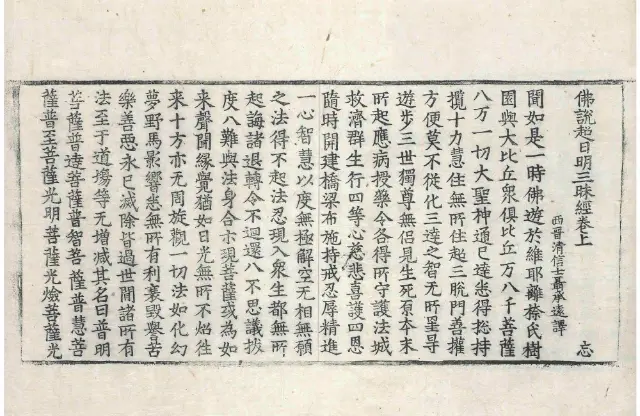 佛說超日明三昧經卷上 忘
西晉清信士聶承遠譯
聞如是一時佛遊於維耶離㮈氏樹
園與大比丘衆俱比丘万八千菩薩
八万一切大聖神通已達悉得捴持
攬十力慧住無所住起三脫門善權
方便莫不從化三達之智无所罣㝵
遊步三世獨尊無侶見生死原本末
所起應病授藥令各得所守護法城
救濟群生行四等心慈悲喜護四恩
隨時開建橋梁布施持戒忍辱精進
一心智慧以度無極解空无相無願
之法得不起法忍現入衆生都無所
起誨諸退轉令不迴還八不思議拔
度八難與法身合亦現菩薩或為如
来聲聞緣覺猶如日光無所不炤徃
来十方亦无周旋觀一切法如化幻
夢野馬影響悉無所有利衰毀譽苦
樂善惡永已滅除皆過世間諸所有
法至于道場等无增减其名曰普明
菩薩普達菩薩普智菩薩普慧菩
薩普至菩薩光明菩薩光燄菩薩光